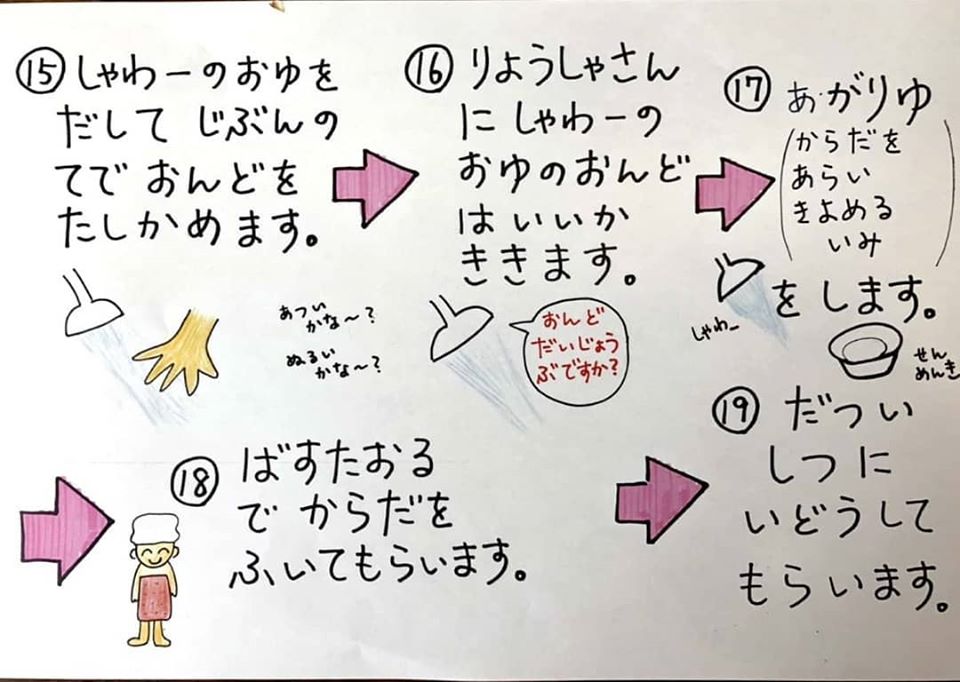 ⑮しゃわーのおゆを
だして じぶんの
てで おんどを
たしかめます。
あつい
かな～?
ぬるい
かな～?
⑯りょうしゃさん
に しゃわーの
おゆのおんど
は いいか
ききます。
おんど
だいじょう
ぶですか?
⑰あがりゆ
(からだを
あらい
きよめる
いみ)
を します。
しゃわー
せん
めんき
⑱ばすたおる
で からだを
ふいてもらいます。
⑲だつい
しつ に
いどうして
もらいます。